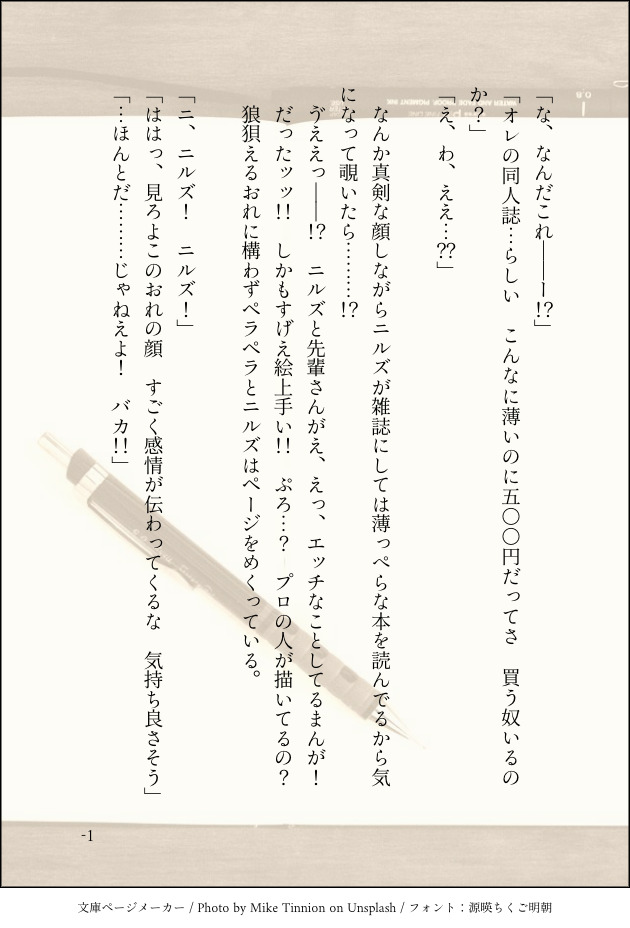 「な、なんだこれ――ー!?」
「オレの同人誌…らしい　こんなに薄いのに五〇〇円だってさ　買う奴いるの
か？」
「え、わ、ええ…??」
なんか真剣な顔しながらニルズが雑誌にしては薄っぺらな本を読んでるから気
になって覗いたら………!?
うえ゛えっ――!?　ニルズと先輩さんがえ、えっ、エッチなことしてるまんが！
だったッッ!!　しかもすげえ絵上手い!!　ぷろ…？　プロの人が描いてるの？
狼狽えるおれに構わずペラペラとニルズはページをめくっている。
「ニ、ニルズ！　ニルズ！」
「ははっ、見ろよこのおれの顔　すごく感情が伝わってくるな　気持ち良さそう」
「…ほんとだ………じゃねえよ！　バカ!!」
-1
文庫ページメーカー / Photo by Mike Tinnion on Unsplash / フォント：源暎ちくご明朝